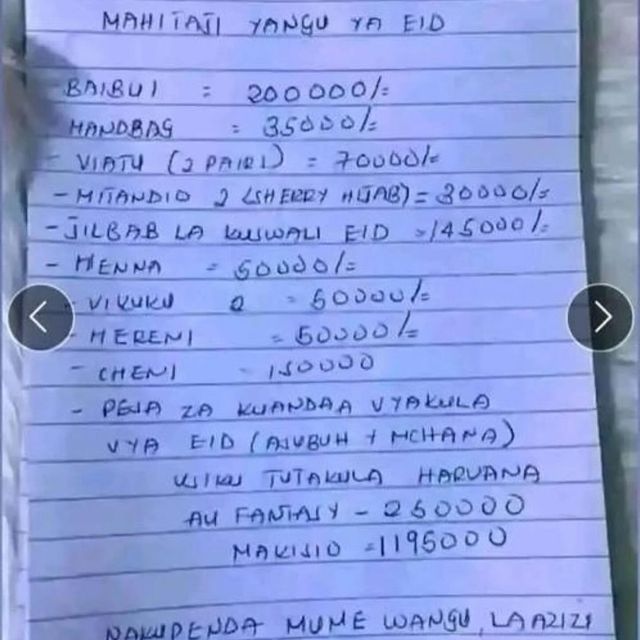 MAHITAJI YANGU YA EID
BAIBUI = 200000/=
HANDBAG = 35000/=
- VIATU (2 PAIRI) = 70000/=
- MITANDIO 2 (SHERRY HIJAB) = 30000/=
- JILBAB LA KUSWALI EID =145000/=
- HENNA = 50000/=
- VIKUKU 2 = 50000/=
- HERENI = 50000/=
- CHENI = 150000
- PESA ZA KUANDAA VYAKULA
VYA EID (ASUBUH Y MCHANA)
USIKU TUTAKULA HARVANA
AU FANTASY - 250000
MAKISIO =1195000
NAKUPENDA MUME WANGU, LAAZIZI